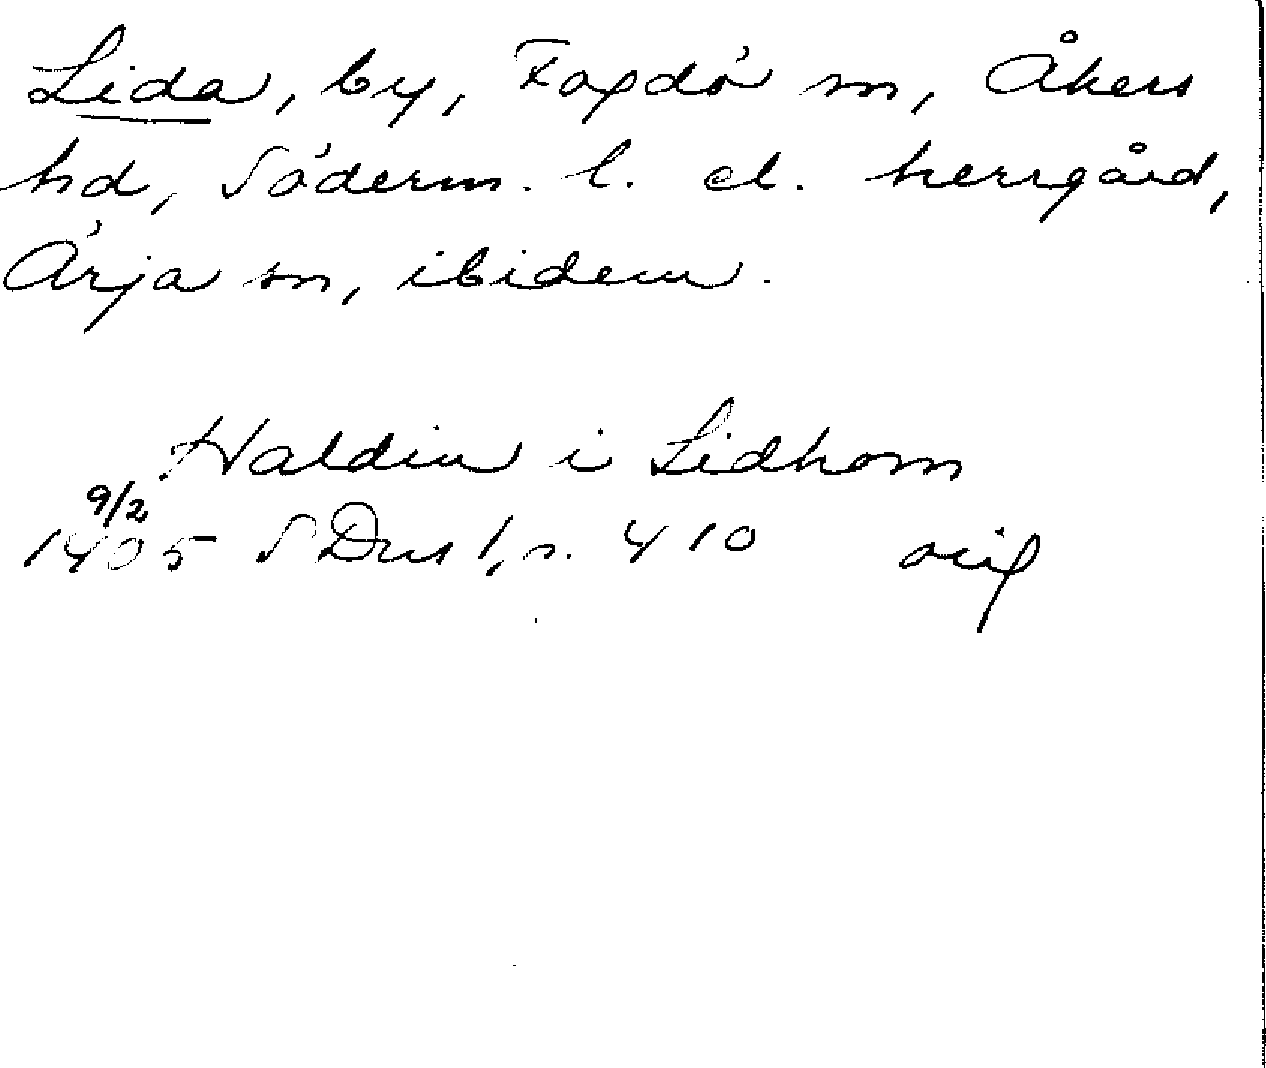 Lida, by, Fogdö sn, Åkers
hd, Söderm. l. el. herrgård,
Ärja sn, ibidem.
Haldin i Lidhom
9/2
1405 SDns 1, s. 410 orig